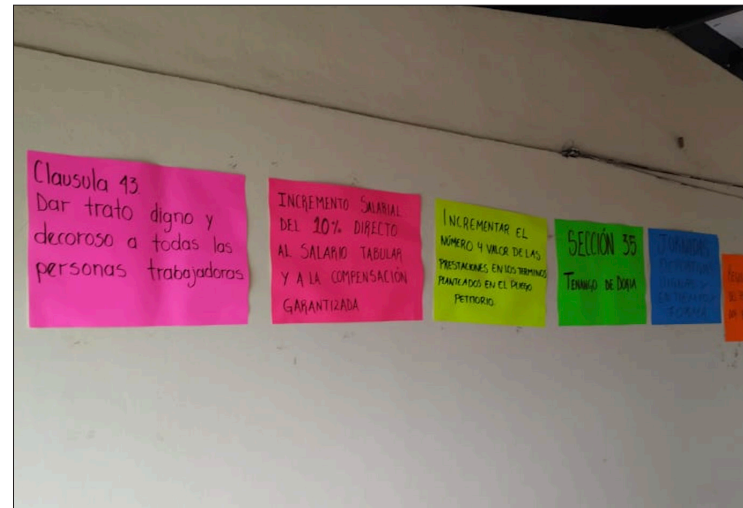 Clausula 43.
Dar trato digno y
decoroso a todas las
personas trabajadoras
INCREMENTO SALARIAL
DEL 10% DIRECTO
AL SALARIO TABULAR
Y A LA COMPENSACIÓN
GARANTIZADA
INCREMENTAR EL
NÚMERO Y VALOR DE LAS
PRESTACIONES EN LOS TERMINOS
PLANTEADOS EN EL PLIEGO
PETITORIO.
SECCIÓN 35
TENANGO DE DORIA
JORNADAS
EN TIEMPO Y
FORMA